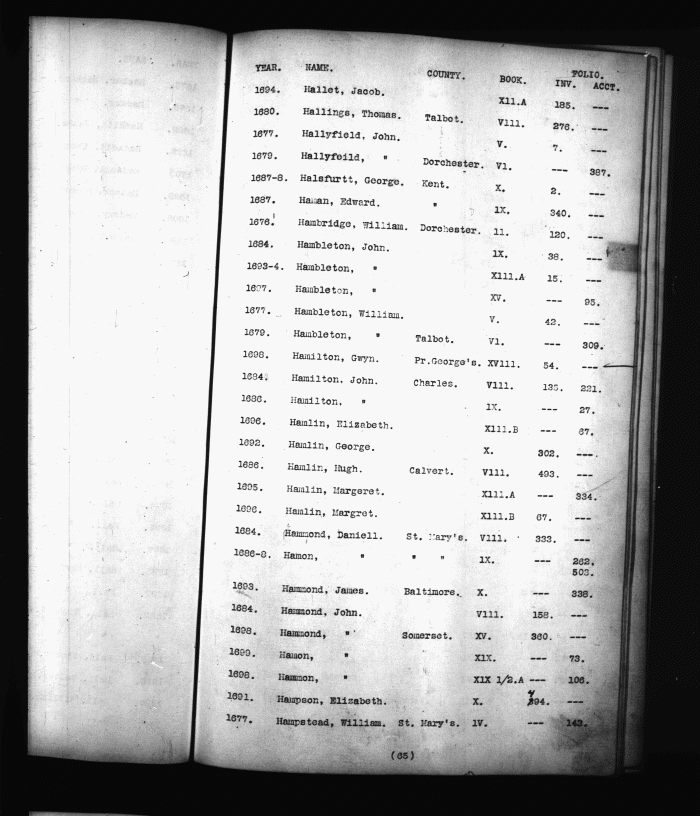 YEAR. NAME. COUNTY. BOOK. FOLIO.
INV. ACCT.
1694. Hallet, Jacob. X11.A 185. ---
1680. Hallings, Thomas. Talbot. V111. 276. ---
1677. Hallyfield, John. V. 7. ---
1679. Hallyfeild, " Dorchester. V1. --- 387.
1687-8. Halsfurtt, George. Kent. X. 2. ---
1687. Haman, Edward. " 1X. 340. ---
1676. Hambridge, William. Dorchester. 11. 120. ---
1684. Hambleton, John. 1X. 38. ---
1693-4. Hambleton, " X111.A 15. ---
Hambleton, " XV. --- 95.
1677. Hambleton, William. V. 42. ---
1679. Hambleton, " Talbot. V1. --- 309.
1698. Hamilton, Gwyn. Pr.George's. XV111. 54. ---
1684. Hamilton, John. Charles. V111. 221.
1686. Hamilton, " 1X. --- 27.
1696. Hamlin, Elizabeth. X111.B --- 67.
1692. Hamlin, George. X. 302. ---
1686. Hamlin, Hugh. Calvert. V111. 493. ---
1695. Hamlin, Margeret. X111.A --- 334.
1696. Hamlin, Margret. X111.B 67. ---
1684. Hammond, Daniell. St. Mary's. V111. 333. ---
1686-8. Hamon, " " " 1X. --- 262.
503.
1693. Hammond, James. Baltimore. X. --- 338.
1684. Hammond, John. V111. 158. ---
1698. Hammond, " Somerset. XV. 360. ---
1699. Hamon, " X1X. --- 73.
1698. Hammon, " X1X 1/2.A --- 106.
1691. Hampson, Elizabeth. X. 494. ---
1677. Hampstead, William. St. Mary's. 1V. --- 143.
(65)